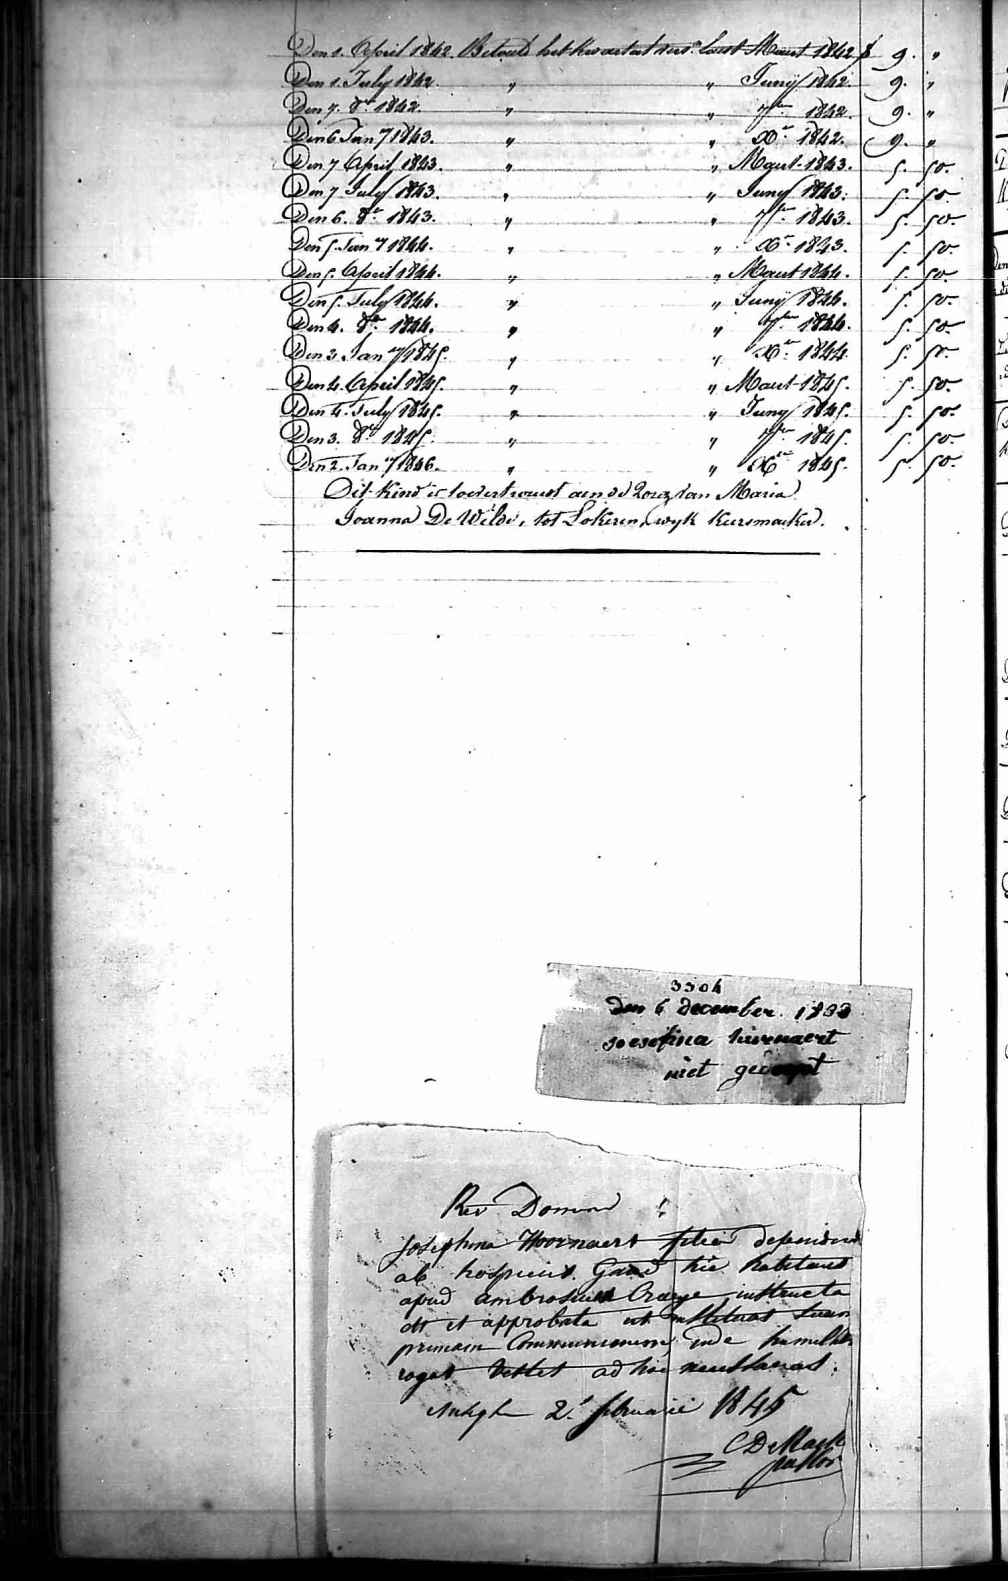 Den 1. April 1842. Betaald het kwartaal vers. laast Maart 1842 f 9. "
Den 1. July 1842. " " Juny 1842. 9. "
Den 7. 8er 1842. " " 7ber 1842. 9. "
Den 6 Jany 1843. " " Xr 1842. 9. "
Den 7 April 1843. " " Maart 1843. 5. 50.
Den 7 July 1843. " " Juny 1843. 5. 50.
Den 6. 8er 1843. " " 7ber 1843. 5. 50.
Den 5. Jany 1844. " " Xr 1843. 5. 50.
Den 5. April 1844. " " Maart 1844. 5. 50.
Den 5. July 1844. " " Juny 1844. 5. 50.
Den 4. 8er 1844. " " 7ber 1844. 5. 50.
Den 3. Jany 1845. " " Xr 1844. 5. 50.
Den 4. April 1845. " " Maart 1845. 5. 50.
Den 4. July 1845. " " Juny 1845. 5. 50.
Den 3. 8er 1845. " " 7ber 1845. 5. 50.
Den 2. Jany 1846. " " Xer 1845. 5. 50.
Dit Kind is toevertrouwt aen de Zorg van Maria
Joanna De Wilde, tot Lokeren, wyk Keersmaeker.
3304
den 6 december 1833
Joesefina
niet
Rev Domine
Josephina Hoornaert filia
ab hospiciis Gand hic habitans
apud Ambrosium Craeye instructa
et approbata ut instituat suam
primam Communionem, inde humiliter
rogat ad hoc
2. februarii 1845
pastor